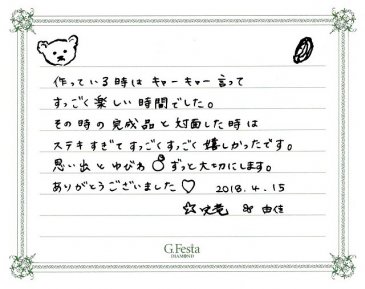 作っている時は キャーキャー言って
すっごく楽しい時間でした。
その時の完成品と対面した時は
ステキすぎてすっごくすっごく嬉しかったです。
思い出とゆびわ ずっと大切にします。
ありがとうございました♡ 2018.4.15
☆ & 由佳
G.Festa
DIAMOND